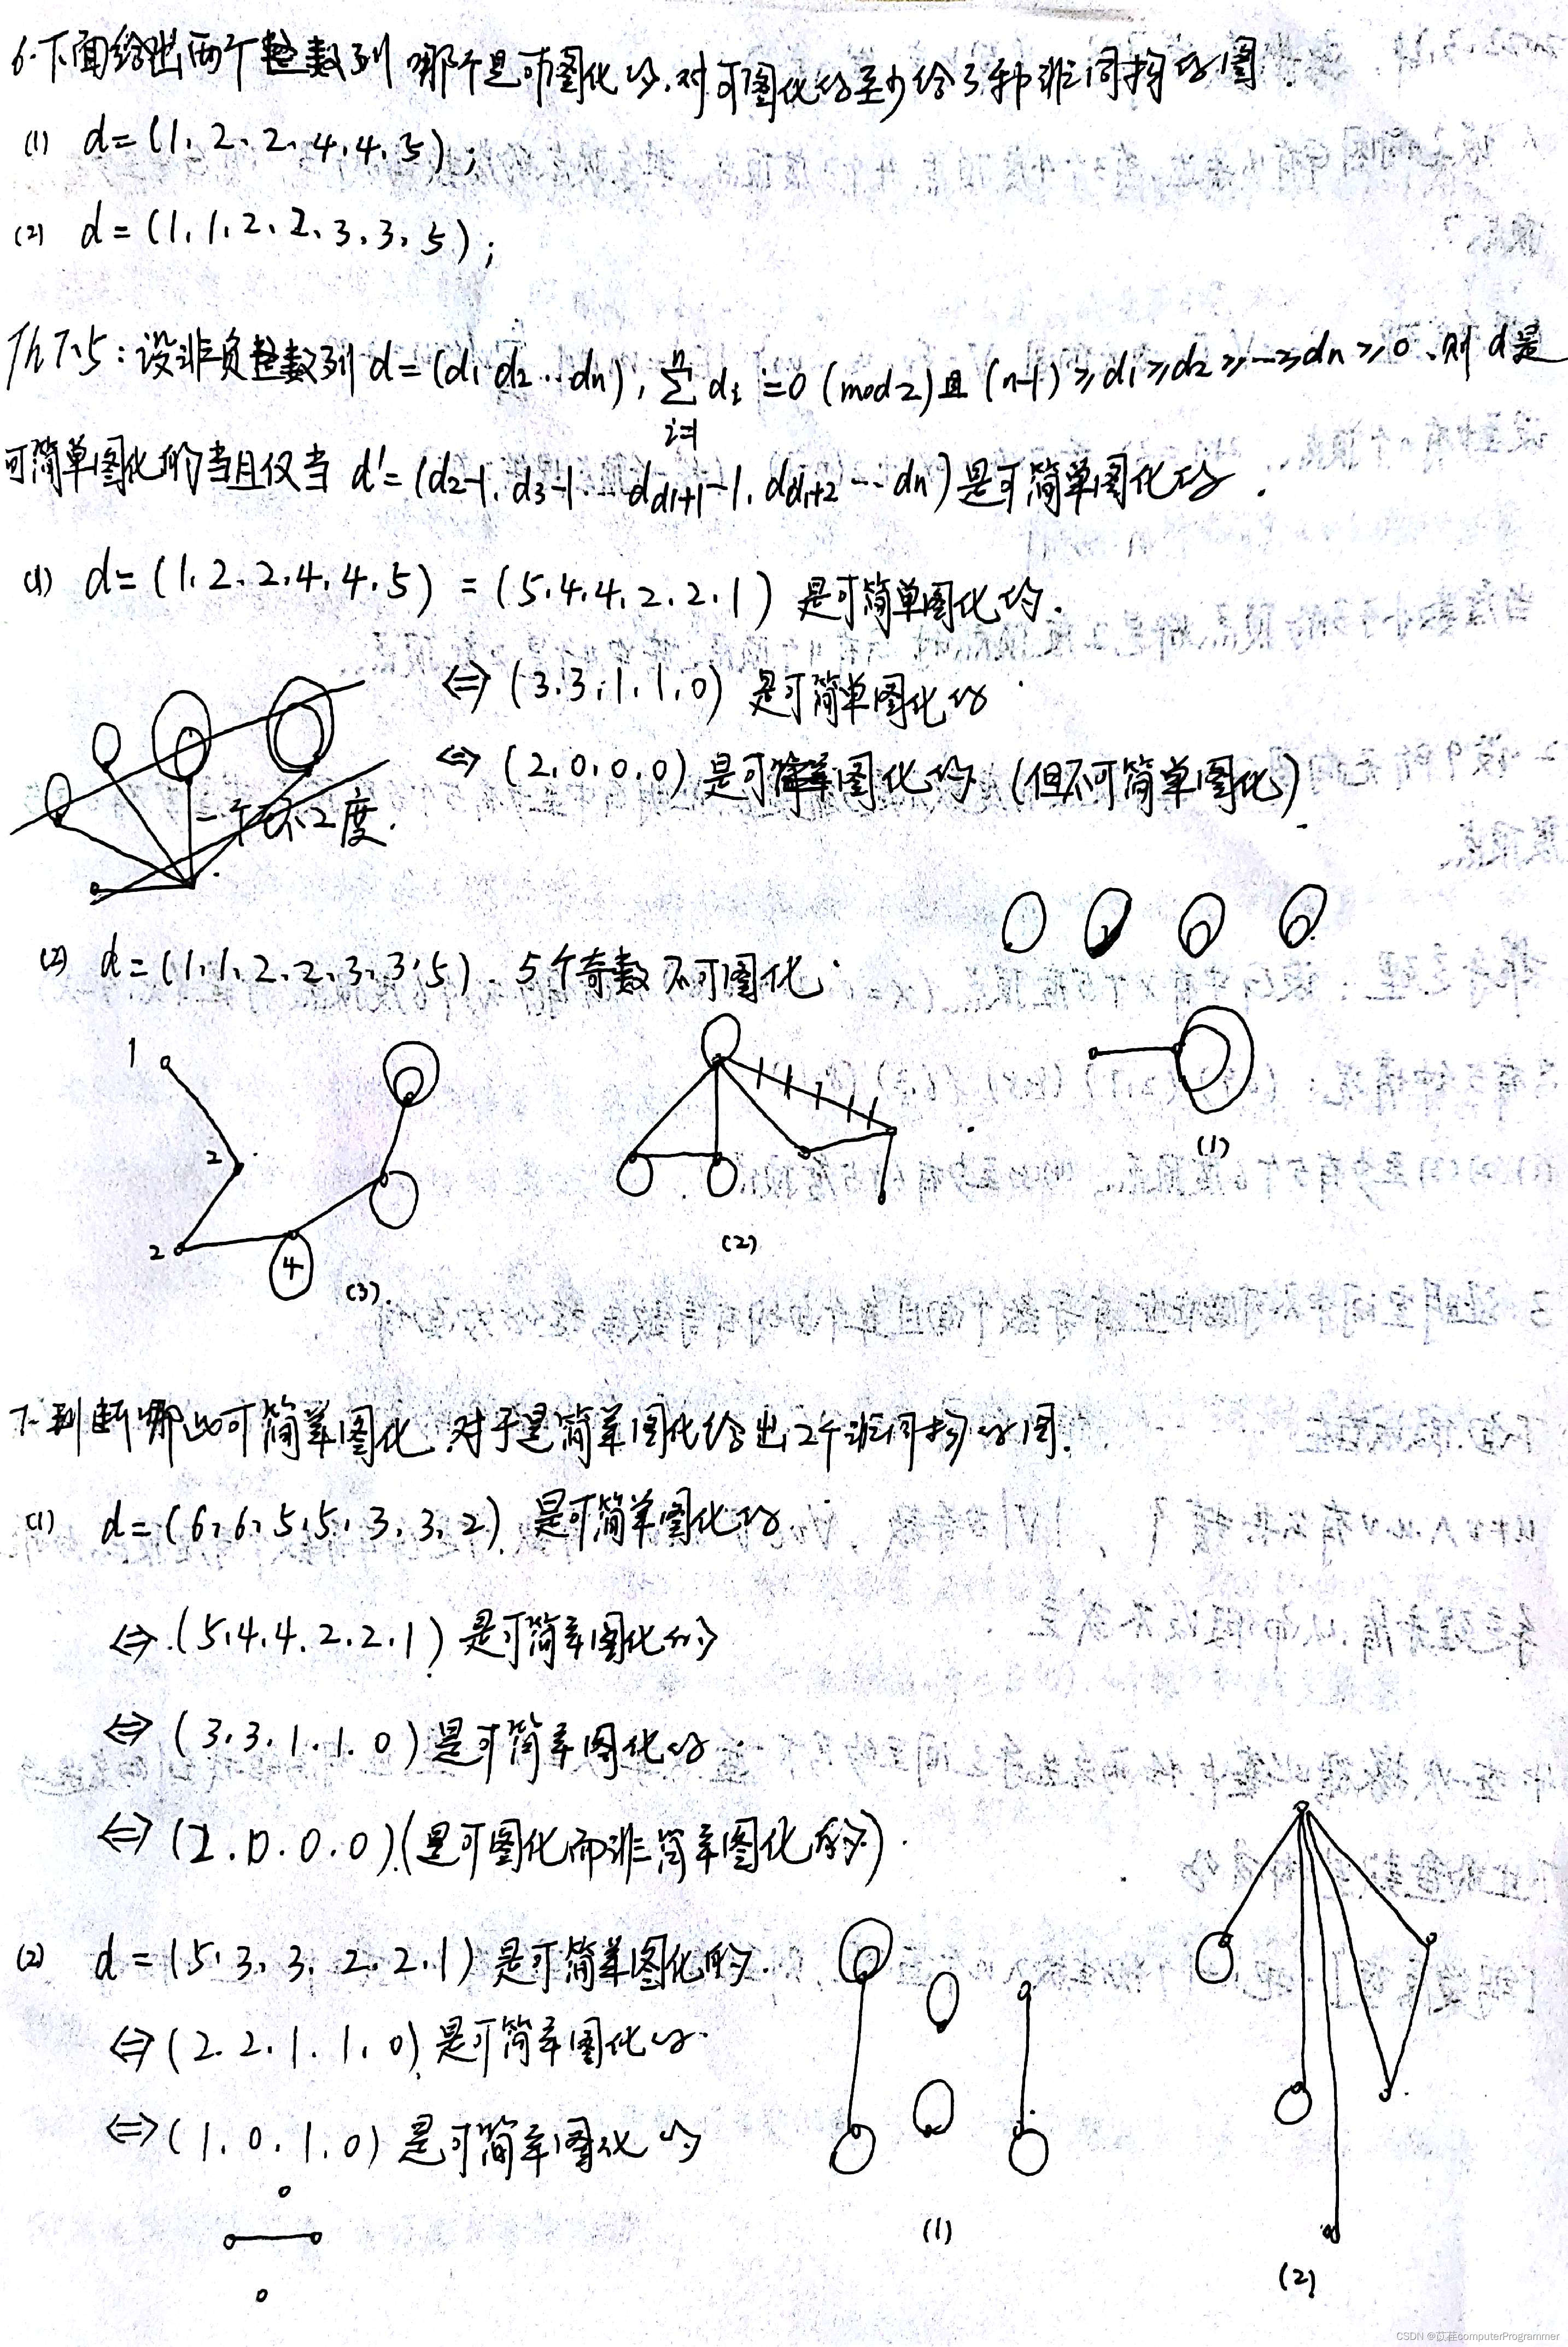 6.下面给出两个整数列 哪个是可图化的,对可图化的至少给3种非同构的图.
(1) d=(1、2、2、4、4、5);
(2) d=(1、1、2、2、3、3、5);
Th7.5:设非负整数列 d=(d₁ d₂ ‥ dn), ∑ᵢ₌₁ⁿ dᵢ =0 (mod2)且 (n-1)≥d₁≥d₂≥…≥dn≥0、则 d是
可简单图化的当且仅当 d'=(d₂-1、d₃-1 … d_{d₁+1}-1、d_{d₁+2} … dn)是可简单图化的.
(1) d=(1、2、2、4、4、5) =(5、4、4、2、2、1) 是可简单图化的.
⇔ (3、3、1、1、0) 是可简单图化的
⇔ (2、0、0、0) 是可简单图化的 (但不可简单图化)
一个环2度.
(2) d=(1、1、2、2、3、3、5). 5个奇数 不可图化.
1
2
2
4
(3)
(2)
(1)
7.判断哪些可简单图化 对于是简单图化给出2个非同构的图.
(1) d=(6、6、5、5、3、3、2) 是可简单图化的
⇔ (5、4、4、2、2、1) 是可简单图化的
⇔ (3、3、1、1、0) 是可简单图化的
⇔ (2、0、0、0) (是可图化而非简单图化的).
(2) d=(5、3、3、2、2、1) 是可简单图化的.
⇔ (2、2、1、1、0) 是可简单图化的.
⇔ (1、0、1、0) 是可简单图化的
(1)
(2)
CSDN @苡荏computerProgrammer